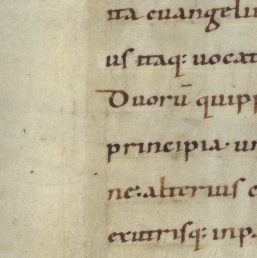 ita euangeli
us itaq: uocat
Duorū quipp
principia· un
ne: alterius e
exutrisq: inp